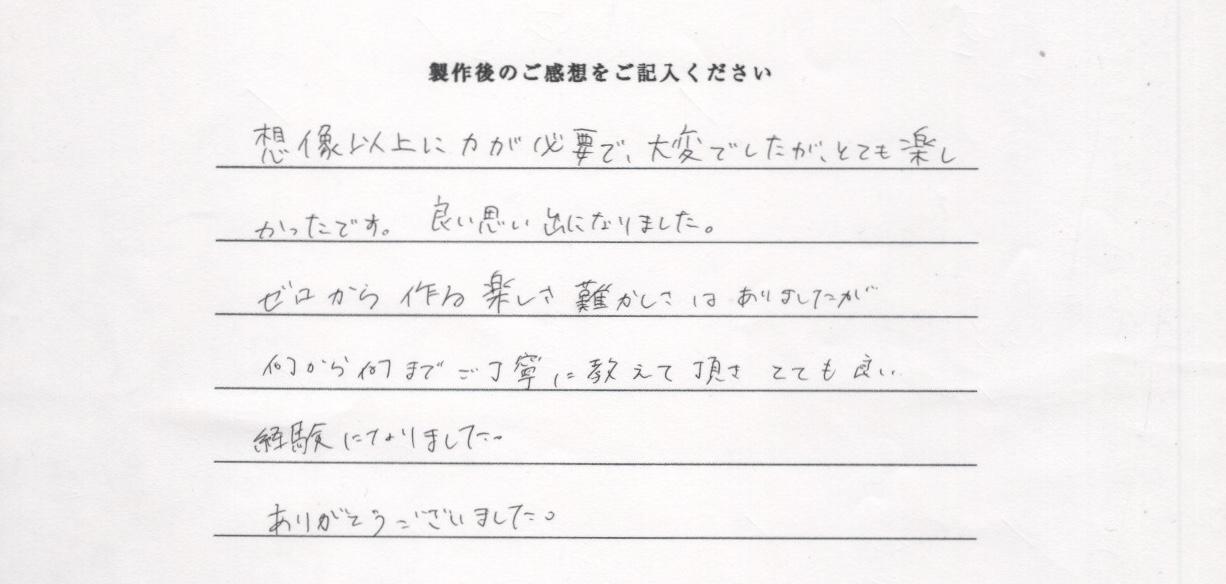 製作後のご感想をご記入ください
想像以上に力が必要で、大変でしたが、とても楽し
かったです。 良い思い出になりました。
ゼロから作る楽しさ難かしさはありましたが
何から何までご丁寧に教えて頂きとても良い
経験になりました。
ありがとうございました。